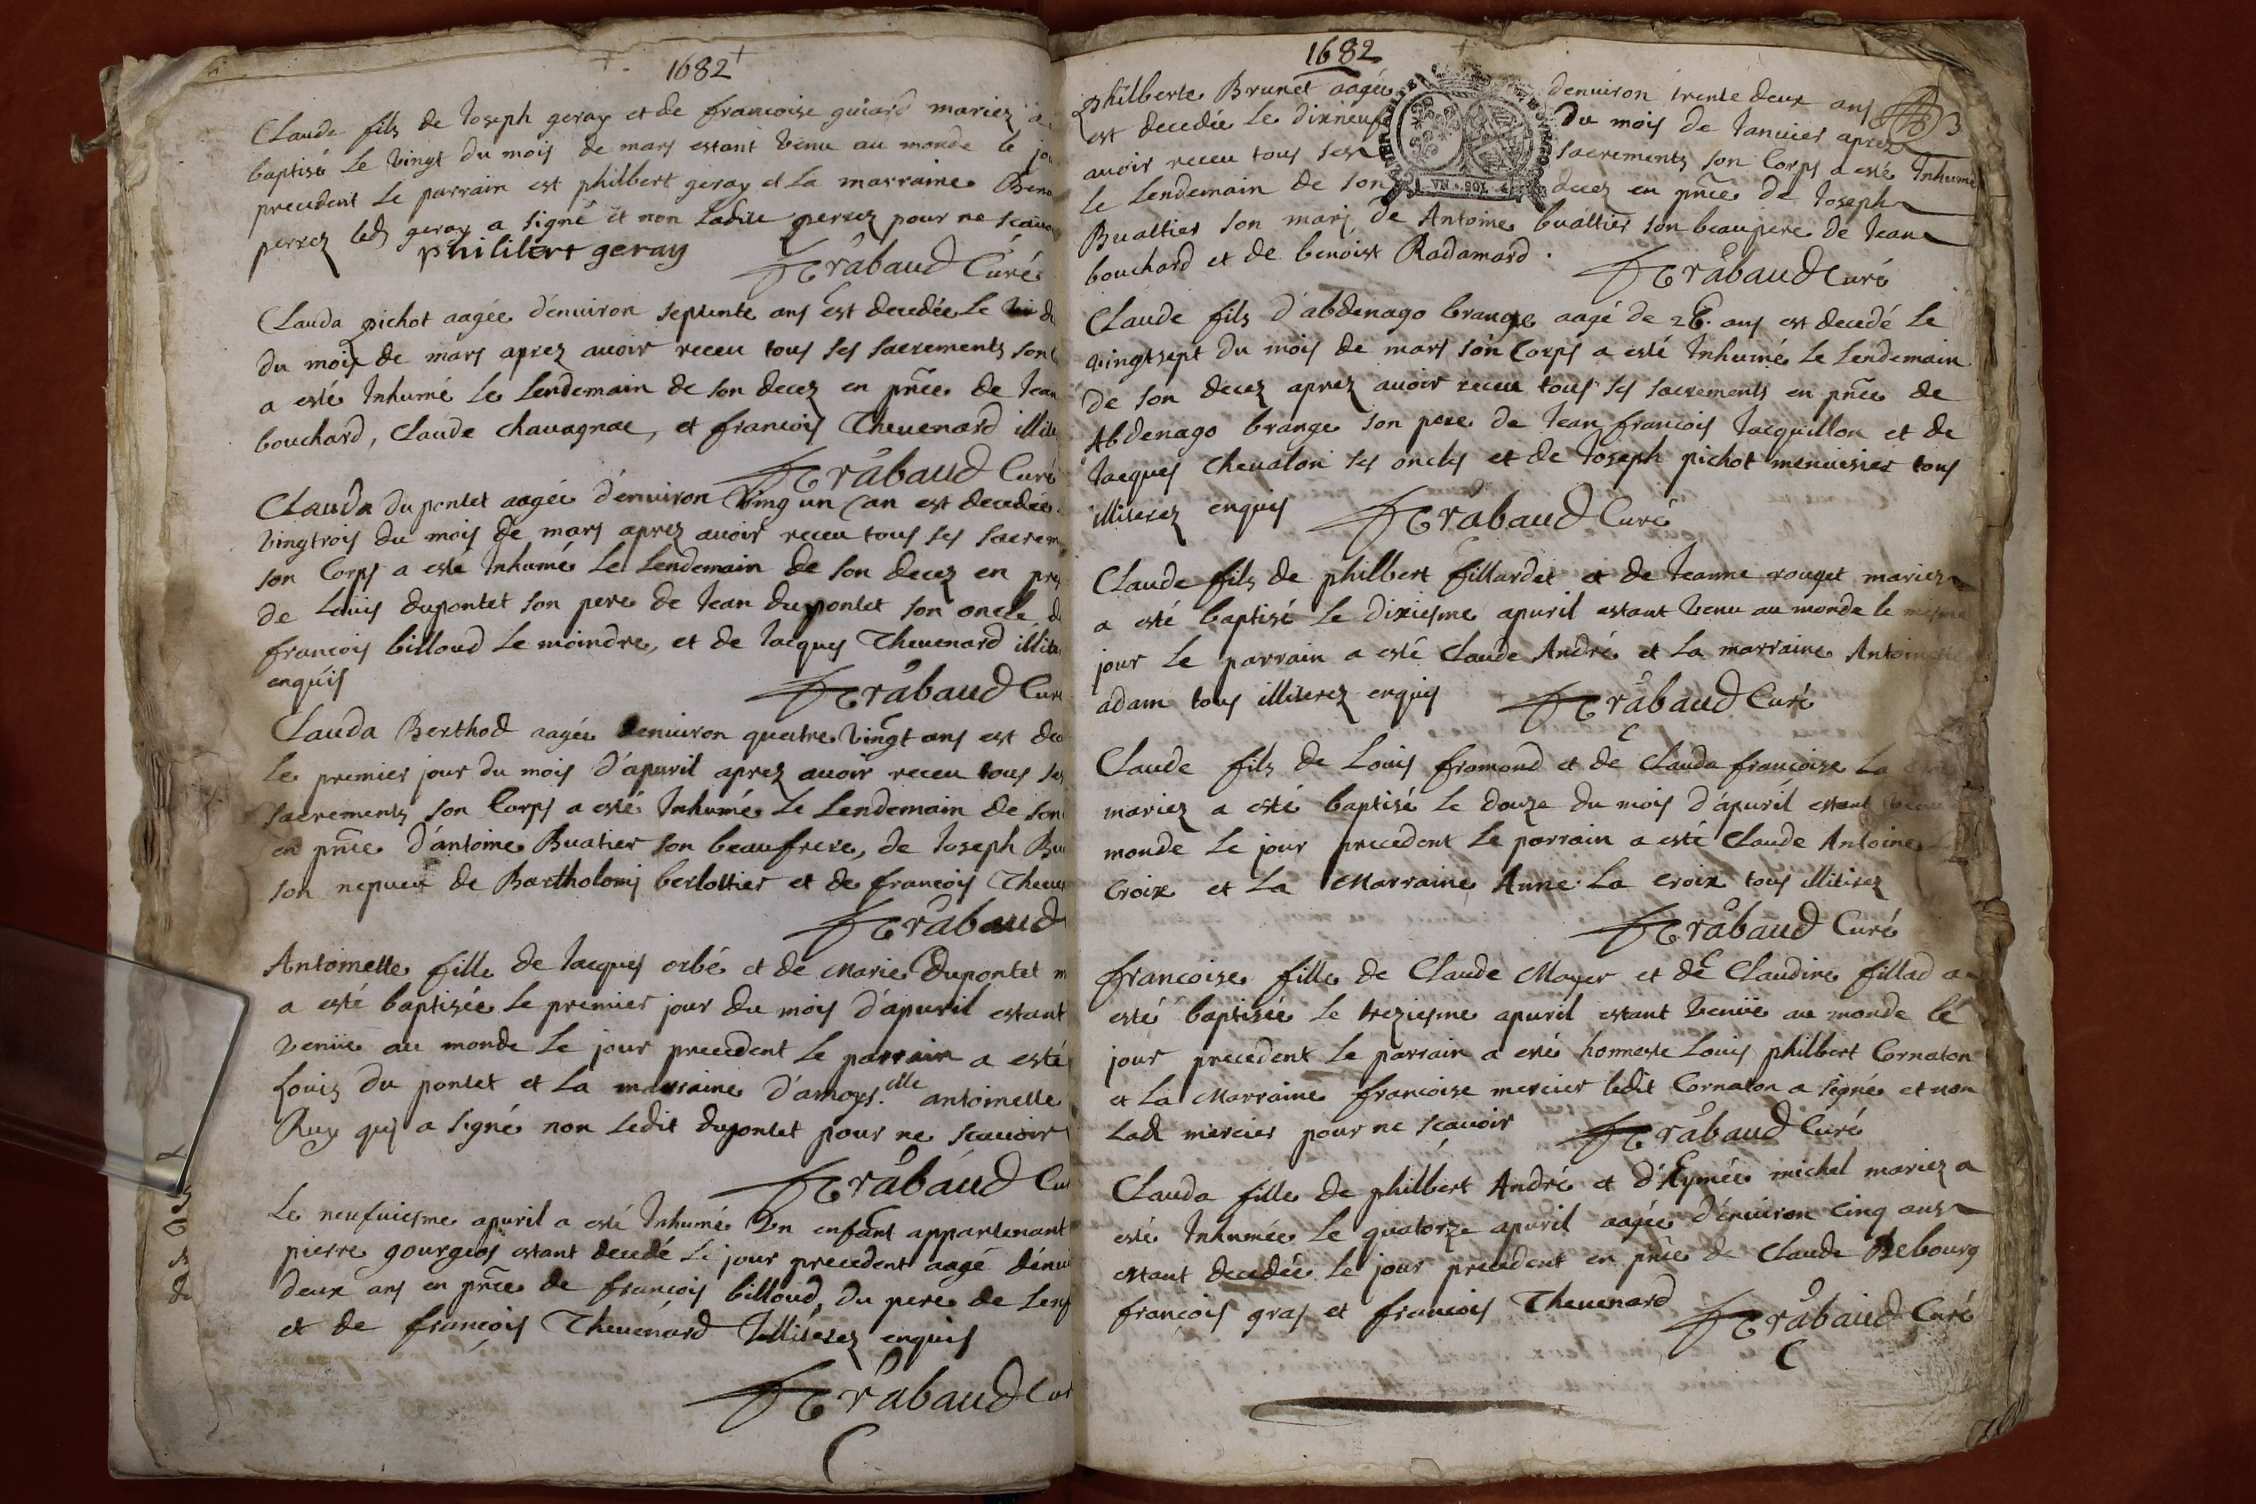 1682
Claude fils de Joseph geray et de francoise guiard mariez a
baptisé le vingt du mois de mars estant venu au monde le jou
precedent le parrain est philbert geray et la marraine Beno
perrez led geray a signé et non ladite perrez pour ne scavo
philibert geray
Trabaud Curé
Clauda pichot aagée d'enuiron septente ans est decedée le
du mois de mars aprez auoir receu tous ses sacrements son
a esté Inhumé le lendemain de son decez en pnce de Jean
bouchard, Claude chauagnac, et francois Theuenard illite
Trabaud Curé
Clauda du pontet aagée d'enuiron ving un an est decedée
vingtrois du mois de mars aprez auoir receu tous ses sacrem
son Corps a esté Inhumé le lendemain de son decez en pre
de Louis dupontet son pere de Jean dupontet son oncle d
francois billoud le moindre, et de Jacques Theuenard illite
enquis
Trabaud Curé
Clauda Berthod aagée denuiron quatre vingt ans est dec
le premier jour du mois d'apuril aprez auoir receu tous ses
sacrements son Corps a esté Inhumé le lendemain de son
en pnce d'antoine Buatier son beaufrere, de Joseph Bu
son nepueu de Bartholomj berlottier et de francois Theue
Trabaud
Antoinette fille de Jacques orbé et de Marie Dupontet m
a esté baptisée le premier jour du mois d'apuril estant
venüe au monde le jour precedent le parrain a esté
Louis du pontet et la marraine d'amoys.elle antoinette
Ruy quj a signé non ledit dupontet pour ne scauoir
Trabaud Cur
Le neufuiesme apuril a esté Inhumé vn enfant appartenant
pierre gourgeos estant decedé le jour precedent aagé d'enui
deux ans en pnce de francois billoud, du pere de lenf
et de francois Theuenard Illiterez enquis
Trabaud Cur
1682
philberte Brunet aagée denuiron trente deux ans 3
est decedée le dixneuf du mois de Januier aprez
auoir receu tous ses sacrements son Corps a esté Inhumé
le lendemain de son decez en pnce de Joseph
VN SOL 4
Bualtier son marj de Antoine bualtier son beaupere de Jean
bouchard et de benoist Radamard.
Trabaud Curé
Claude fils d'abdenago brange aagé de 26. ans est decedé le
vingtsept du mois de mars son Corps a esté Inhumé le lendemain
de son decez aprez auoir receu tous ses sacrements en pnce de
Abdenago brange son pere de Jean francois Jacquillon et de
Jacques cheualon ses oncles et de Joseph pichot menuisier tous
illiterez enquis Trabaud Curé
Claude fils de philbert fillardet et de Jeanne rouget mariez
a esté baptisé le dixiesme apuril estant venu au monde le mesme
jour le parrain a esté Claude André et la marraine Antoinette
adam tous illiterez enquis Trabaud Curé
Claude fils de Louis fromond et de Clauda francoise La
mariez a esté baptisé le douze du mois d'apuril estant venu
monde le jour precedent le parrain a esté Claude Antoine
Croix et La Marraine Anne La croix tous illiterez
Trabaud Curé
francoise fille de Claude Mayer et de Claudine fillad a
esté baptisée le treziesme apuril estant venüe au monde le
jour precedent le parrain a esté honneste Louis philbert Cornaton
et La Marraine francoise mercier ledit Cornaton a signé et non
Lade mercier pour ne scauoir Trabaud Curé
Clauda fille de philbert André et d'Eymée michel mariez a
esté Inhumée le quatorze apuril aagée d'enuiron cinq ans
estant decedée le jour precedent en pnce de Claude Rebourg
francois gras et francois Theuenard Trabaud Curé